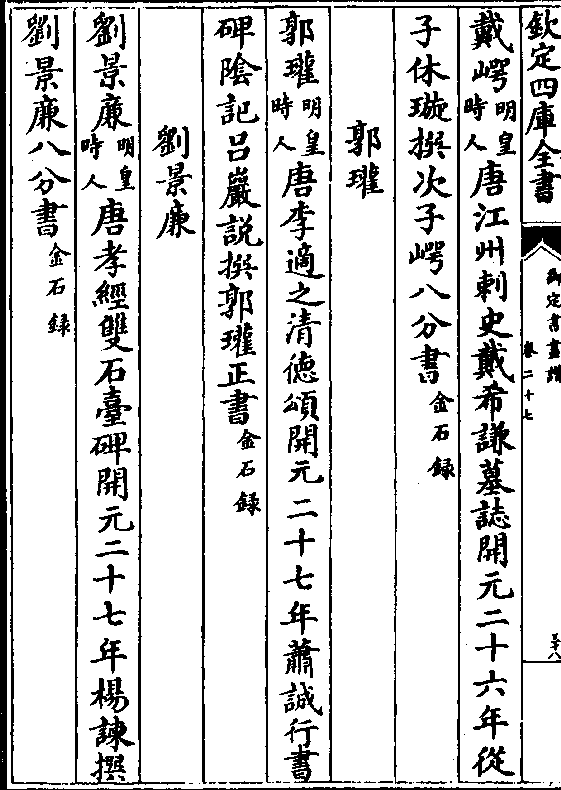 欽定四庫全書
御定書畫譜
卷二十七
五十八
戴㟧明皇時人唐江州刺史戴希謙墓誌開元二十六年從
子休璇撰次子㟧八分書金石錄
郭瓘
郭瓘明皇時人唐李適之清德頌開元二十七年蕭誠行書
碑陰記呂巖説撰郭瓘正書金石錄
劉景亷
劉景亷明皇時人唐孝經雙石臺碑開元二十七年楊諫撰
劉景亷八分書金石錄